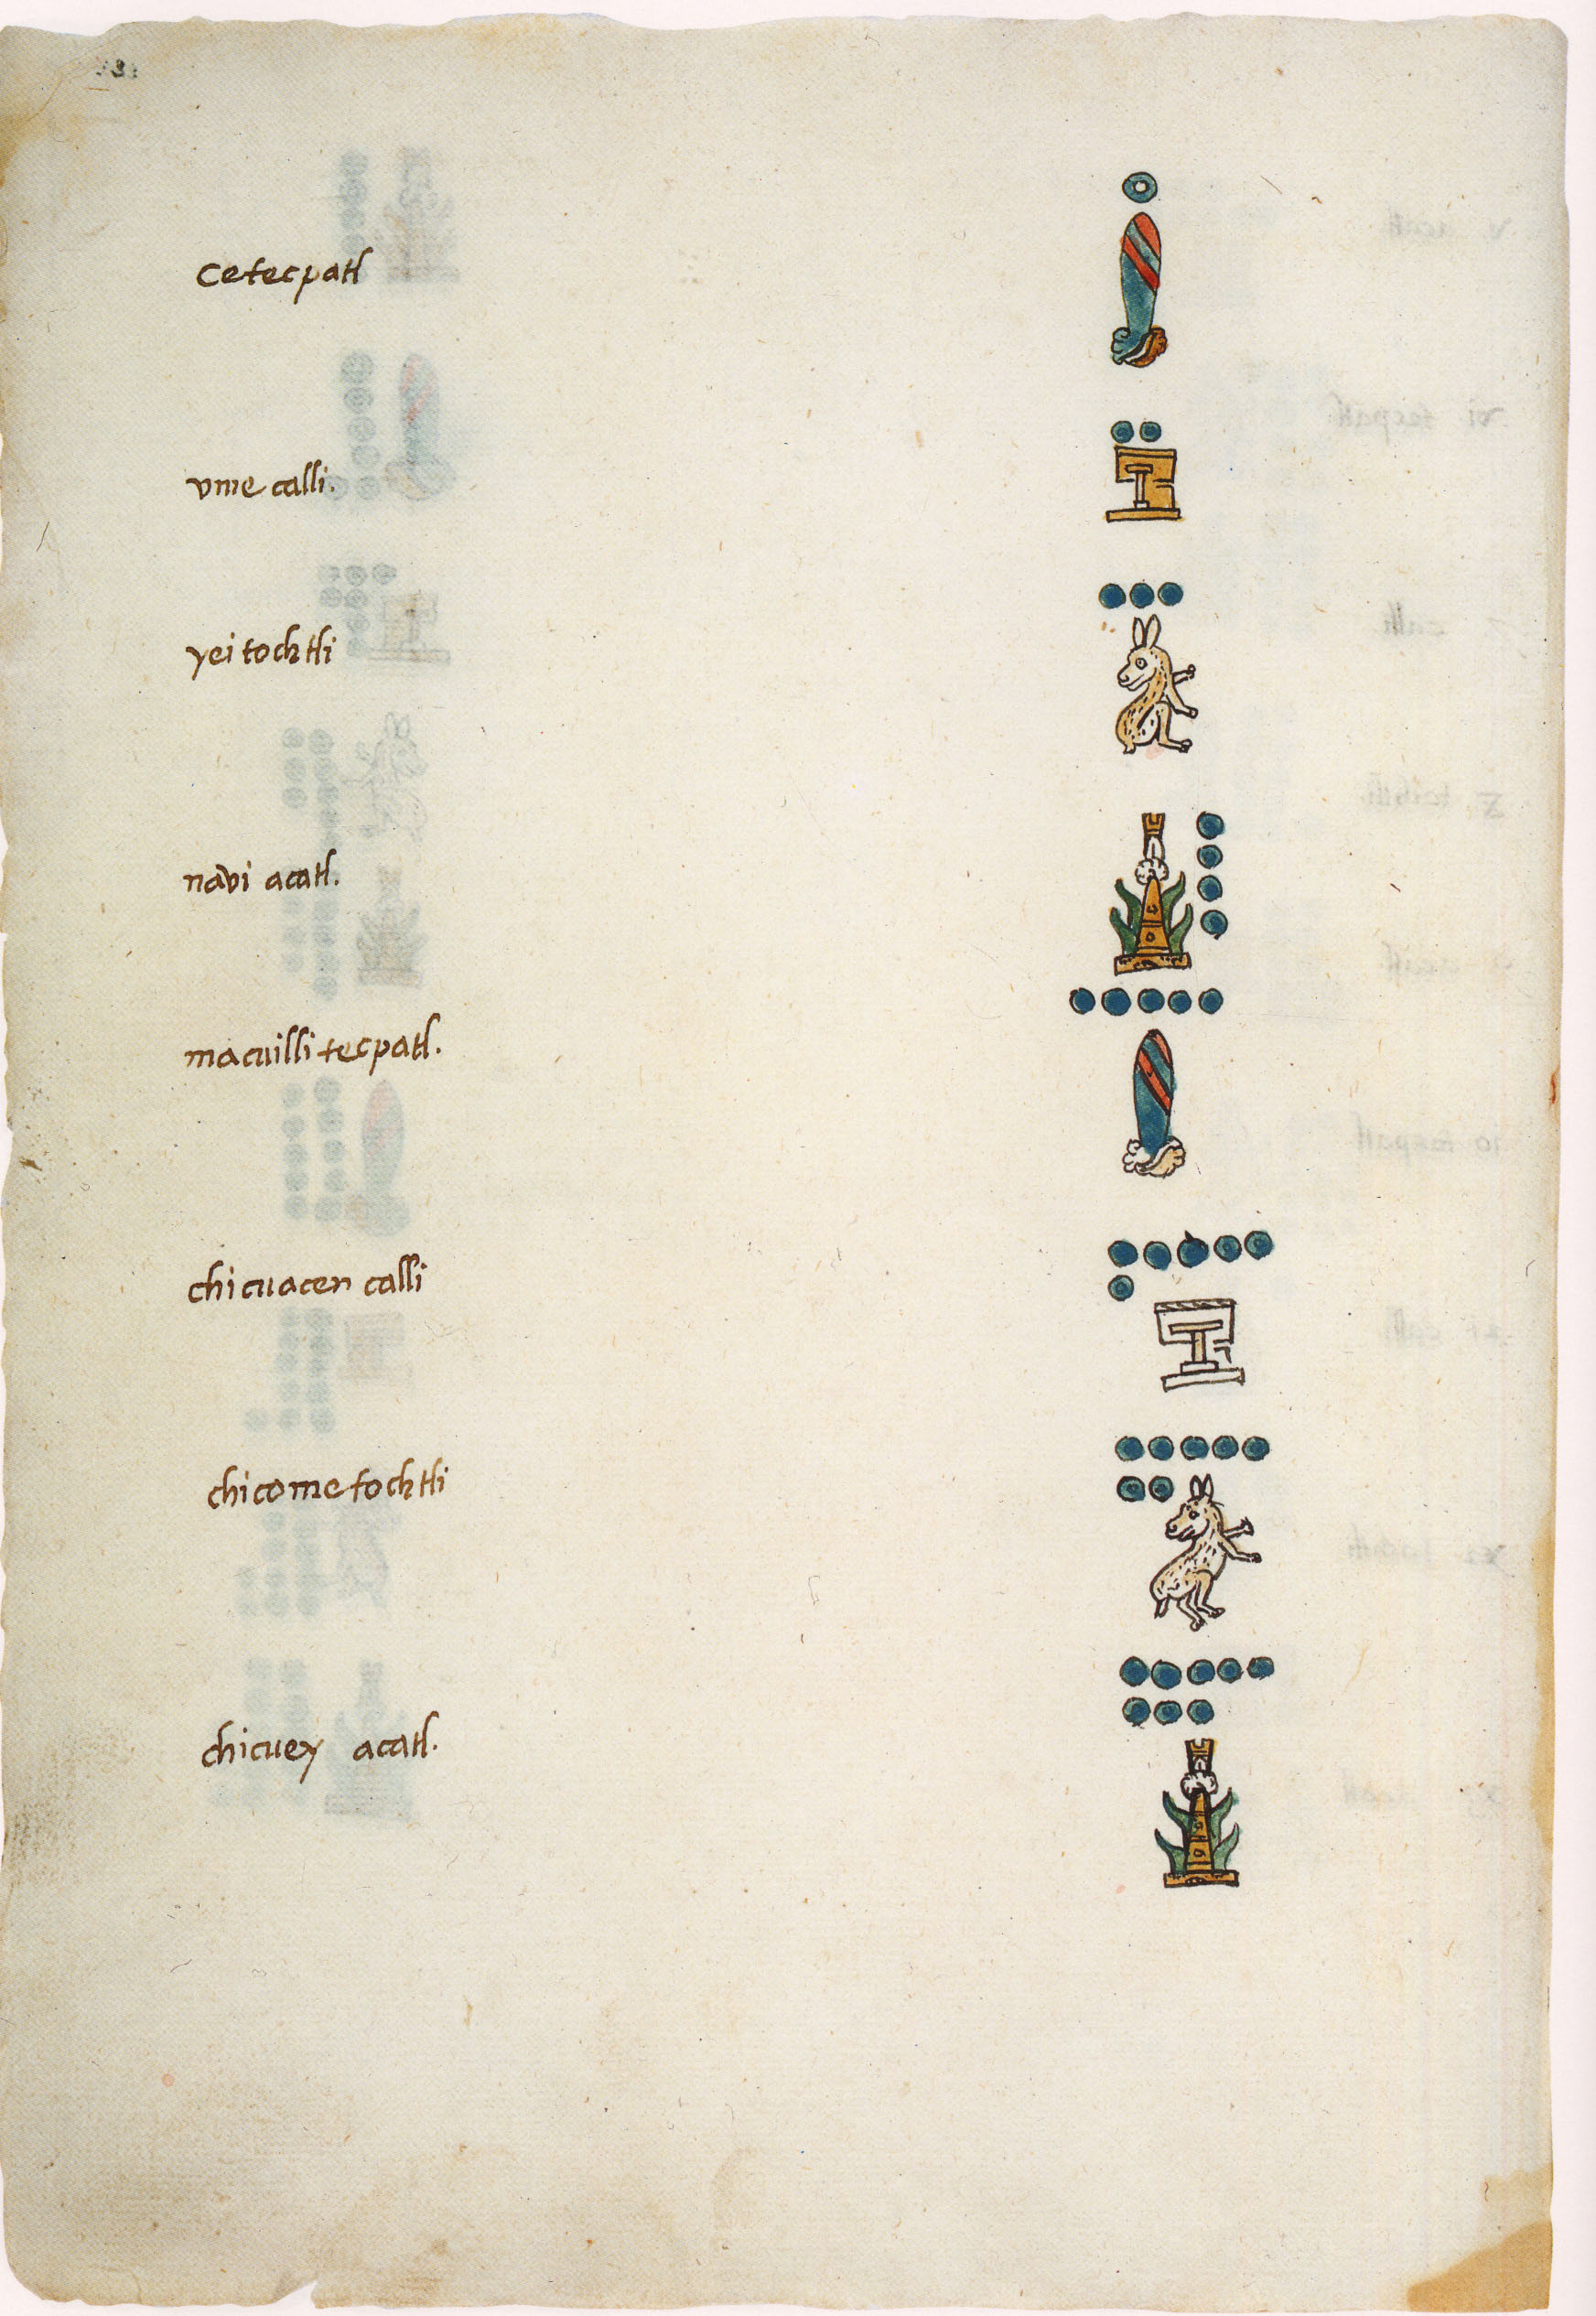 Cetecpatl
vme calli.
yei tochtli
navi acatl.
macuilli tecpatl.
chicuacen calli
chicome tochtli
chicuey acatl.